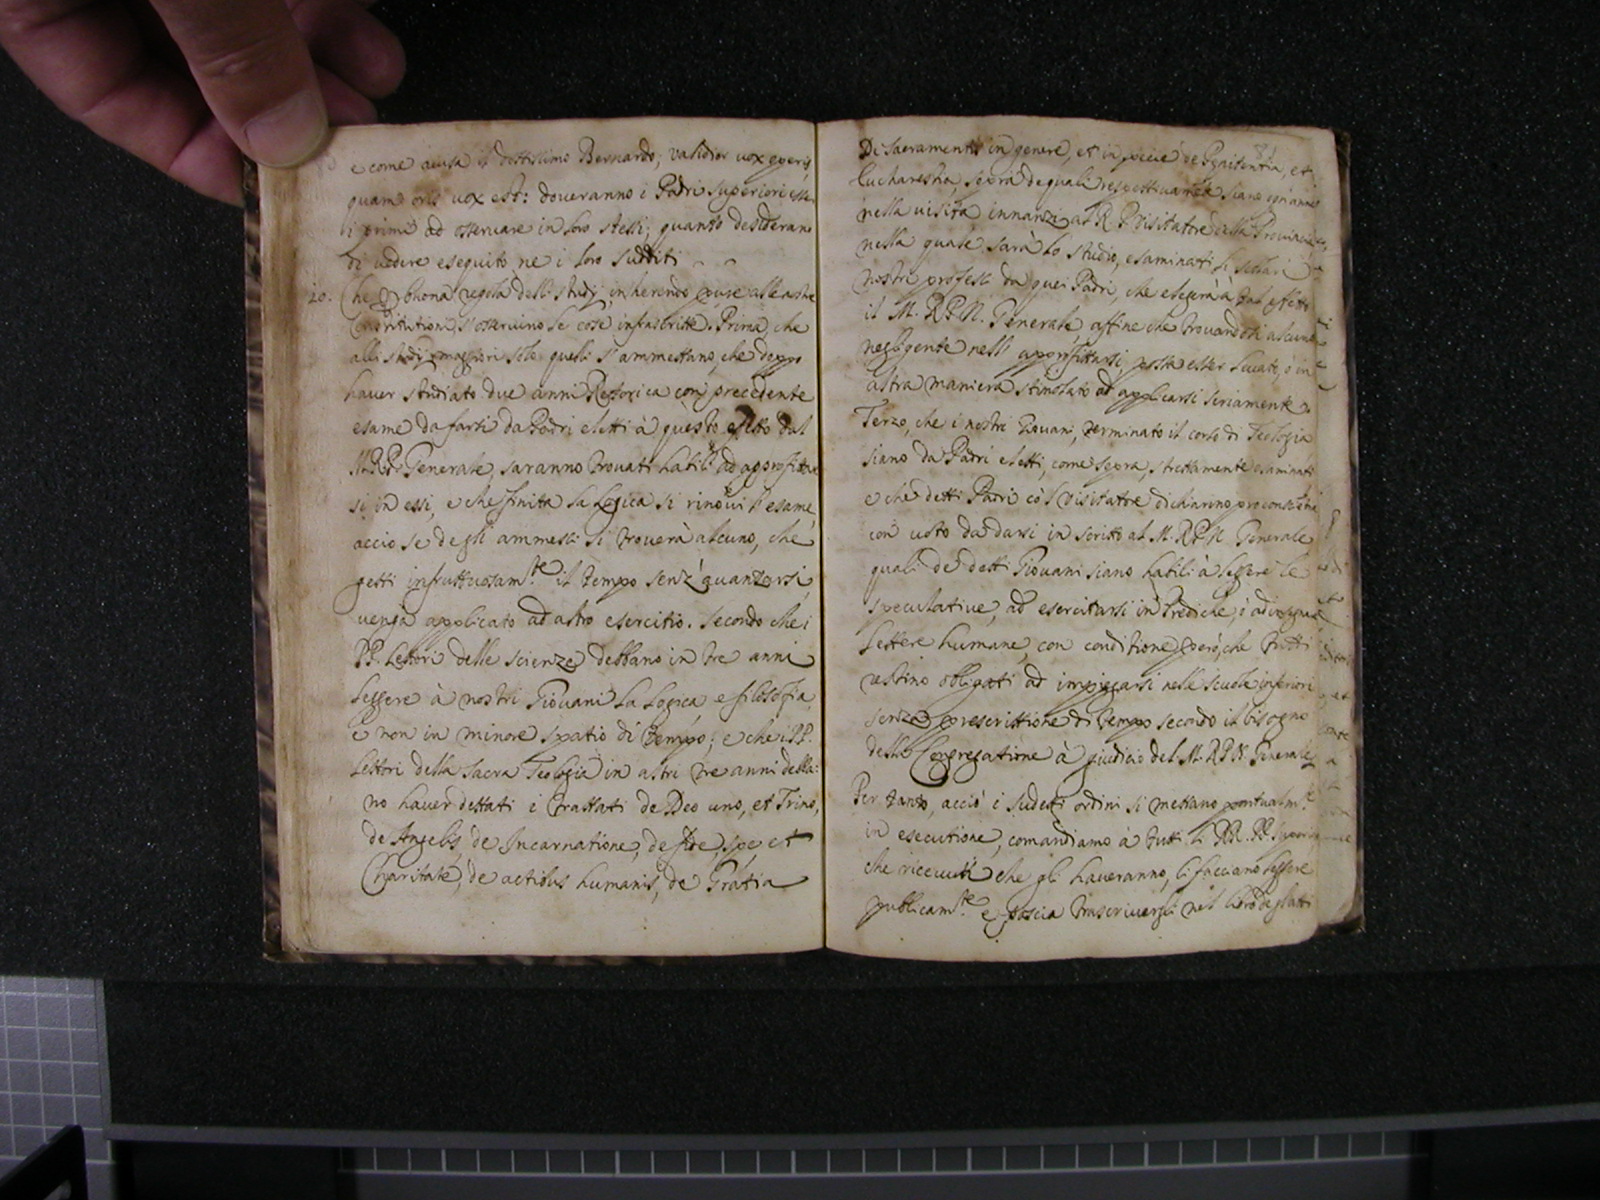 e come avisa il dottissimo Bernardo; validior vox operis
quam oris vox est: doveranno i Padri superiori esser
li primi ad osservare in loro stessi, quanto desiderano
di vedere eseguito ne i loro sudditi
20. Che per buona regola delli studij, inherendo pure alle nostre
Constitutioni, s'osservino le cose infrascritte. Prima, che
alli studij maggiori solo quelli s'ammettano, che doppo
haver studiato due anni Rettorica con precedente
esame da farsi da Padri eletti à questo effetto dal
M.R.P. Generale, saranno trovati habili ad approfittar
si in essi, e che finita la Logica si rinovi l'esame,
acciò se degli ammessi si troverà alcuno, che
getti infruttuosam.te il tempo senz'avanzarsi,
venga applicato ad altro esercitio. Secondo che i
PP. Lettori delle scienze debbano in tre anni
leggere à nostri Giovani la Logica, e filosofia,
e non in minore spatio di tempo; e che i PP.
Lettori della Sacra Teologia in altri tre anni debba:
no haver dettati i trattati de Deo uno, et Trino,
de Angelis, de Incarnatione, de fide, spe, et
Charitate, de actibus humanis, de Gratia
De Sacramentis in genere, et in specie de Penitentia, et
Eucharestia, sopra de quali respettivam.te siano ogn'anno
nella visita innanzi al R.P. Visitatore della Provincia,
nella quale sarà lo studio, esaminati li scolari
nostri professi da quei Padri, che elegerà à tal effetto
il M.R.P.N. Generale, affine che trovandosi alcuno
negligente nell'approfittarsi, possa esser levato, ò in
altra maniera stimolato ad applicarsi seriamente.
Terzo, che i nostri Giovani, terminato il corso di Teologia
siano da Padri eletti, come sopra, strettamente esaminati
e che detti Padri col Visitatore dichiarino pro conscientia
con voto da darsi in scritto al M.R.P.N. Generale
quali de detti Giovani siano habili à leggere le
speculative, ad esercitarsi in Prediche, ò ad insegnar
lettere humane, con conditione però, che tutti
restino obligati ad impiegarsi nelle scuole inferiori
senza prescrittione di tempo secondo il bisogno
della Congregatione à giudicio del M.R.P.N. Generale
Per tanto, acciò i sudetti ordini si mettano pontualm.te
in esecutione, comandiamo à tutti li RR. PP. Superiori
che ricevuti che gli haveranno, li facciano leggere
publicam.te e poscia trascrivergli nel libro degl'atti